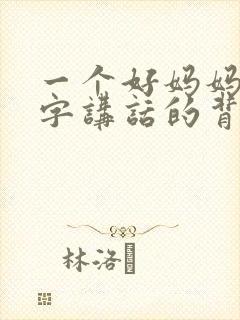 一个好妈妈
字講話的背
林洛